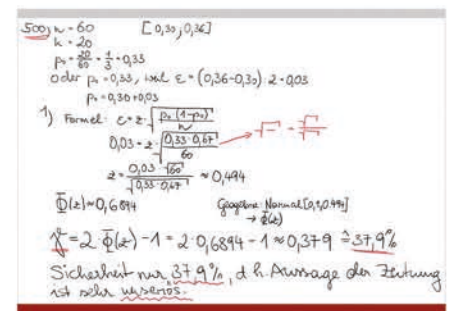 500) n = 60 [0,30; 0,36]
k = 20
p₀ = 20/60 = 1/3 ≈ 0,33
oder p₀ = 0,33, weil ε = (0,36-0,30) : 2 = 0,03
p₀ = 0,30 + 0,03
1) Formel: ε = z · √(p₀ · (1-p₀)/n)
0,03 = z · √(0,33 · 0,67/60) → √‾ = √‾/√‾
z = 0,03 · √60/√(0,33 · 0,67) ≈ 0,494
Φ(z) ≈ 0,6894 Geogebra: Normal[0,1,0.494]
→ Φ(z)
γ = 2 · Φ(z) - 1 = 2 · 0,6894 - 1 ≈ 0,379 ≙ 37,9%
Sicherheit nur 37,9%, d.h. Aussage der Zeitung
ist sehr unseriös.